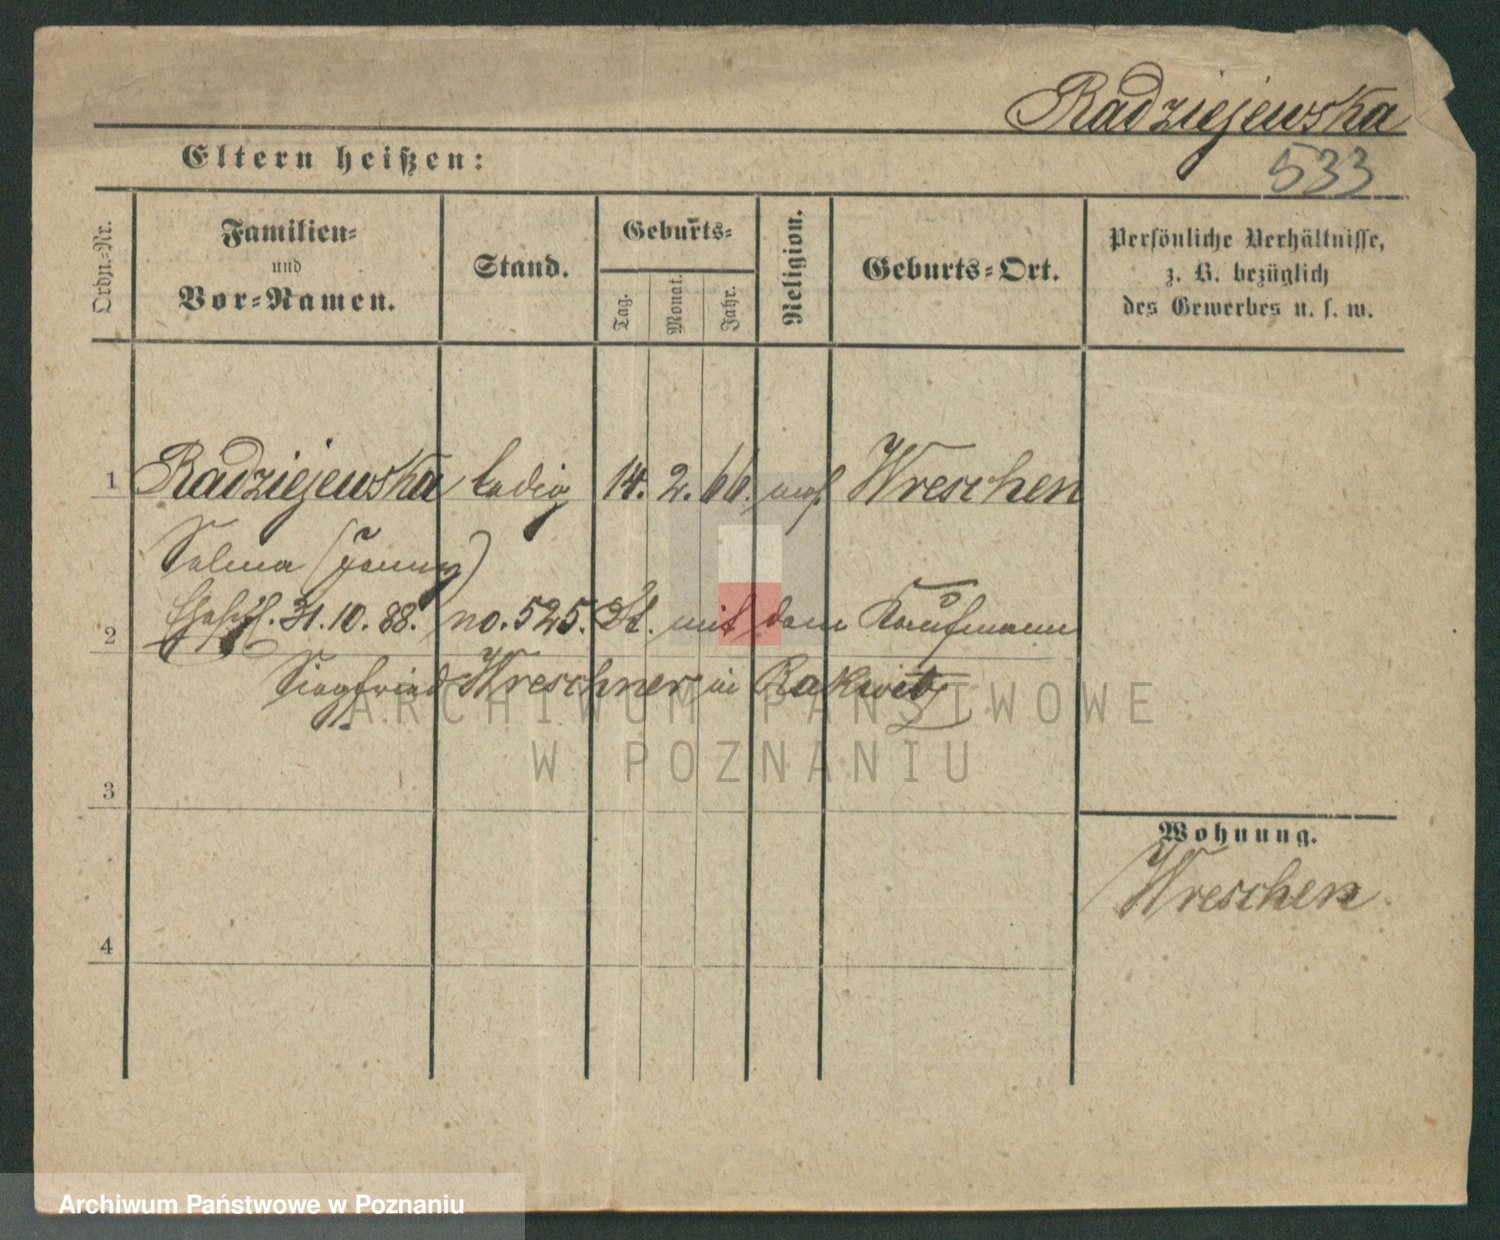 Radziejewska
Eltern heißen:
533
Ordn.-Nr.
Familien-
und
Vor-Namen.
Stand.
Geburts-
Tag.
Monat.
Jahr.
Religion.
Geburts-Ort.
Persönliche Verhältnisse,
z. B. bezüglich
des Gewerbes u. s. w.
1 Radziejewska ledig 14. 2. 66. mos. Wreschen
Selma (Jenny)
2 Ehesch. 31. 10. 88. no. 525. St. mit dem Kaufmann
Siegfried Wreschner in Rakwitz
ARCHIWUM PAŃSTWOWE
W POZNANIU
3
Wohnung.
Wreschen
4
Archiwum Państwowe w Poznaniu